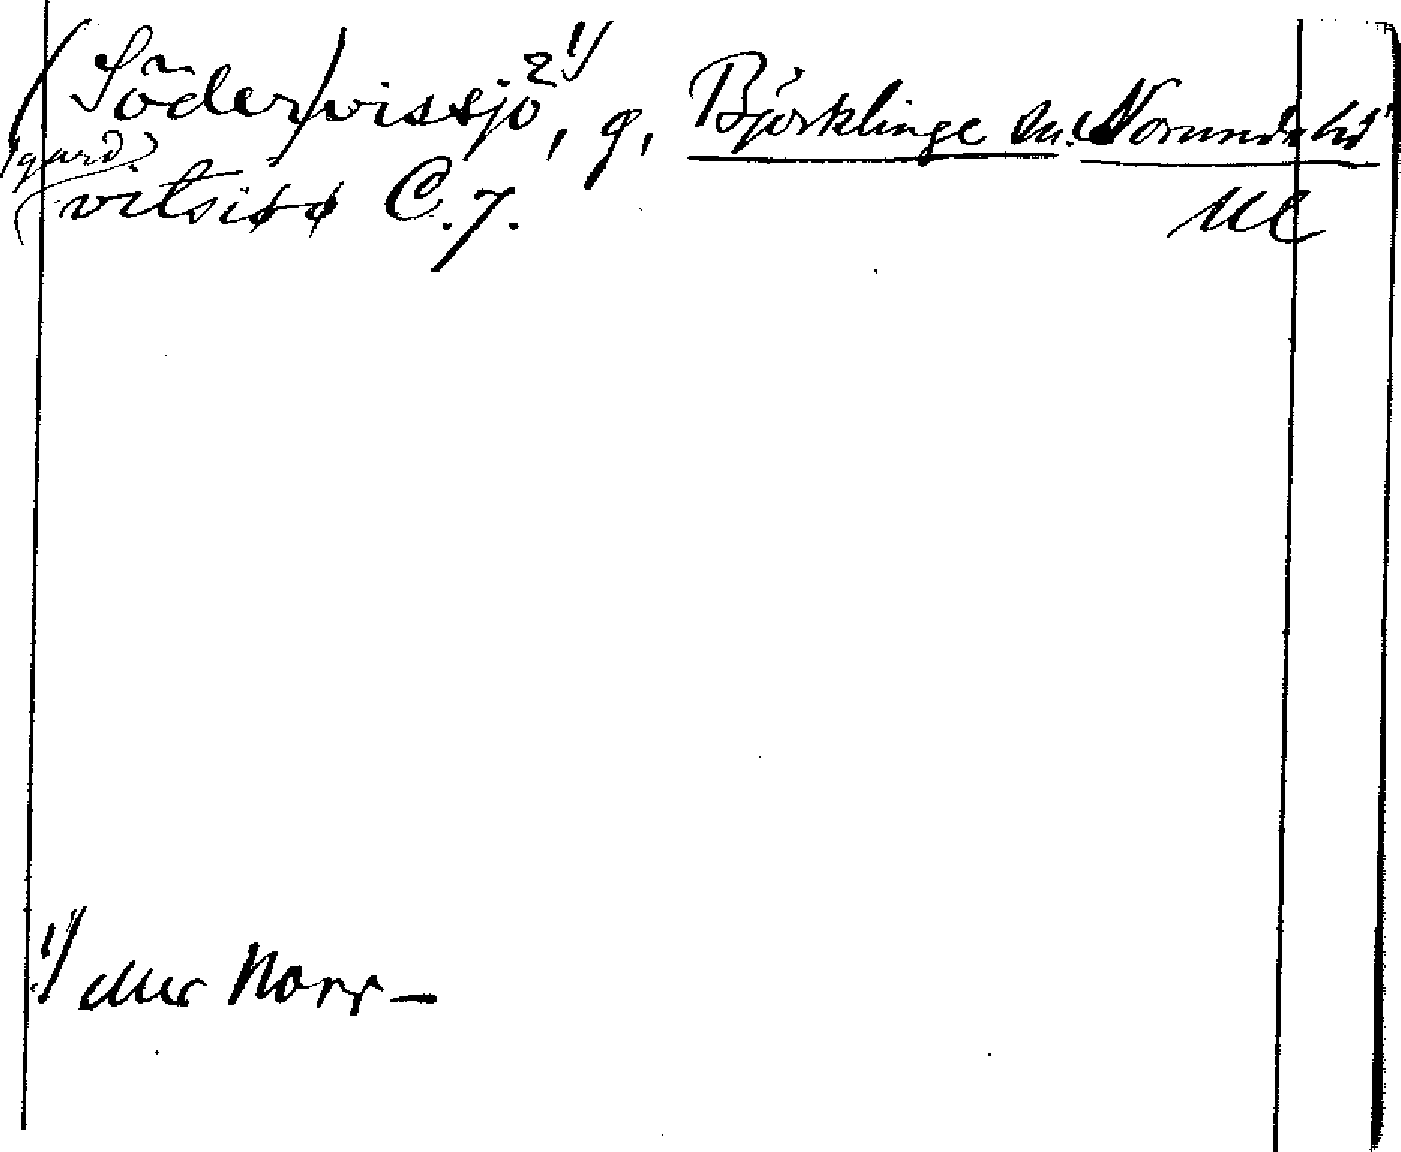 (Söder)vissjö 2 1), g, Björklinge sn. Norunda hd
(gård?)
vitsisø C.7. UC
1) eller Norr –